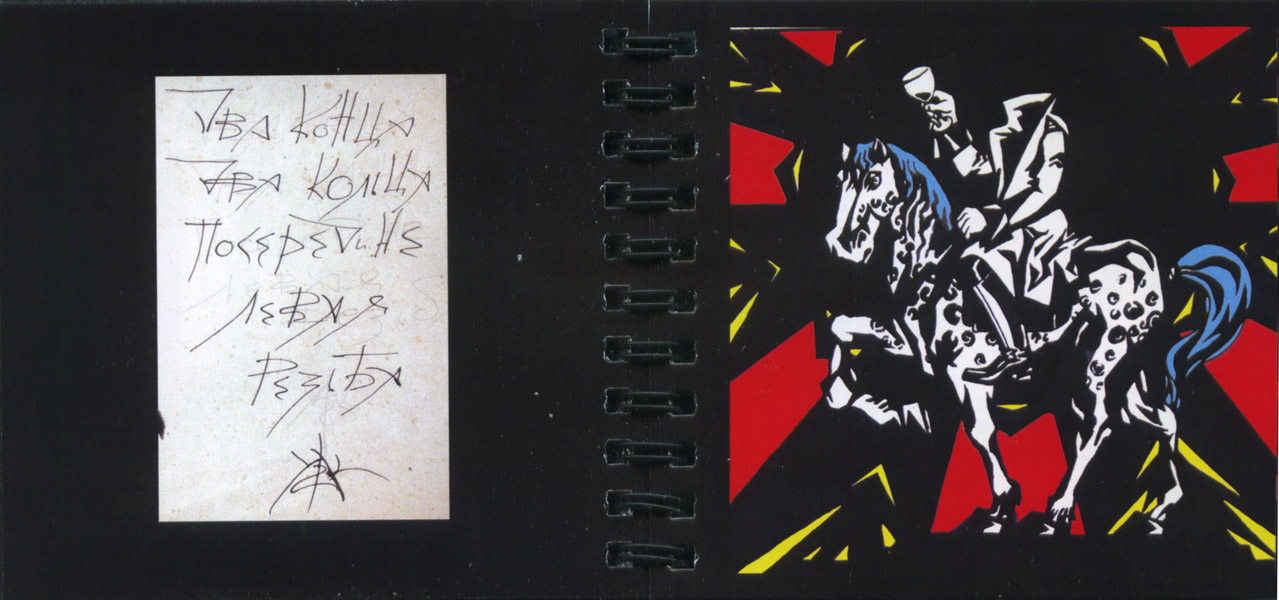 Два конца
Два кольца
Посередине
левая
резьба